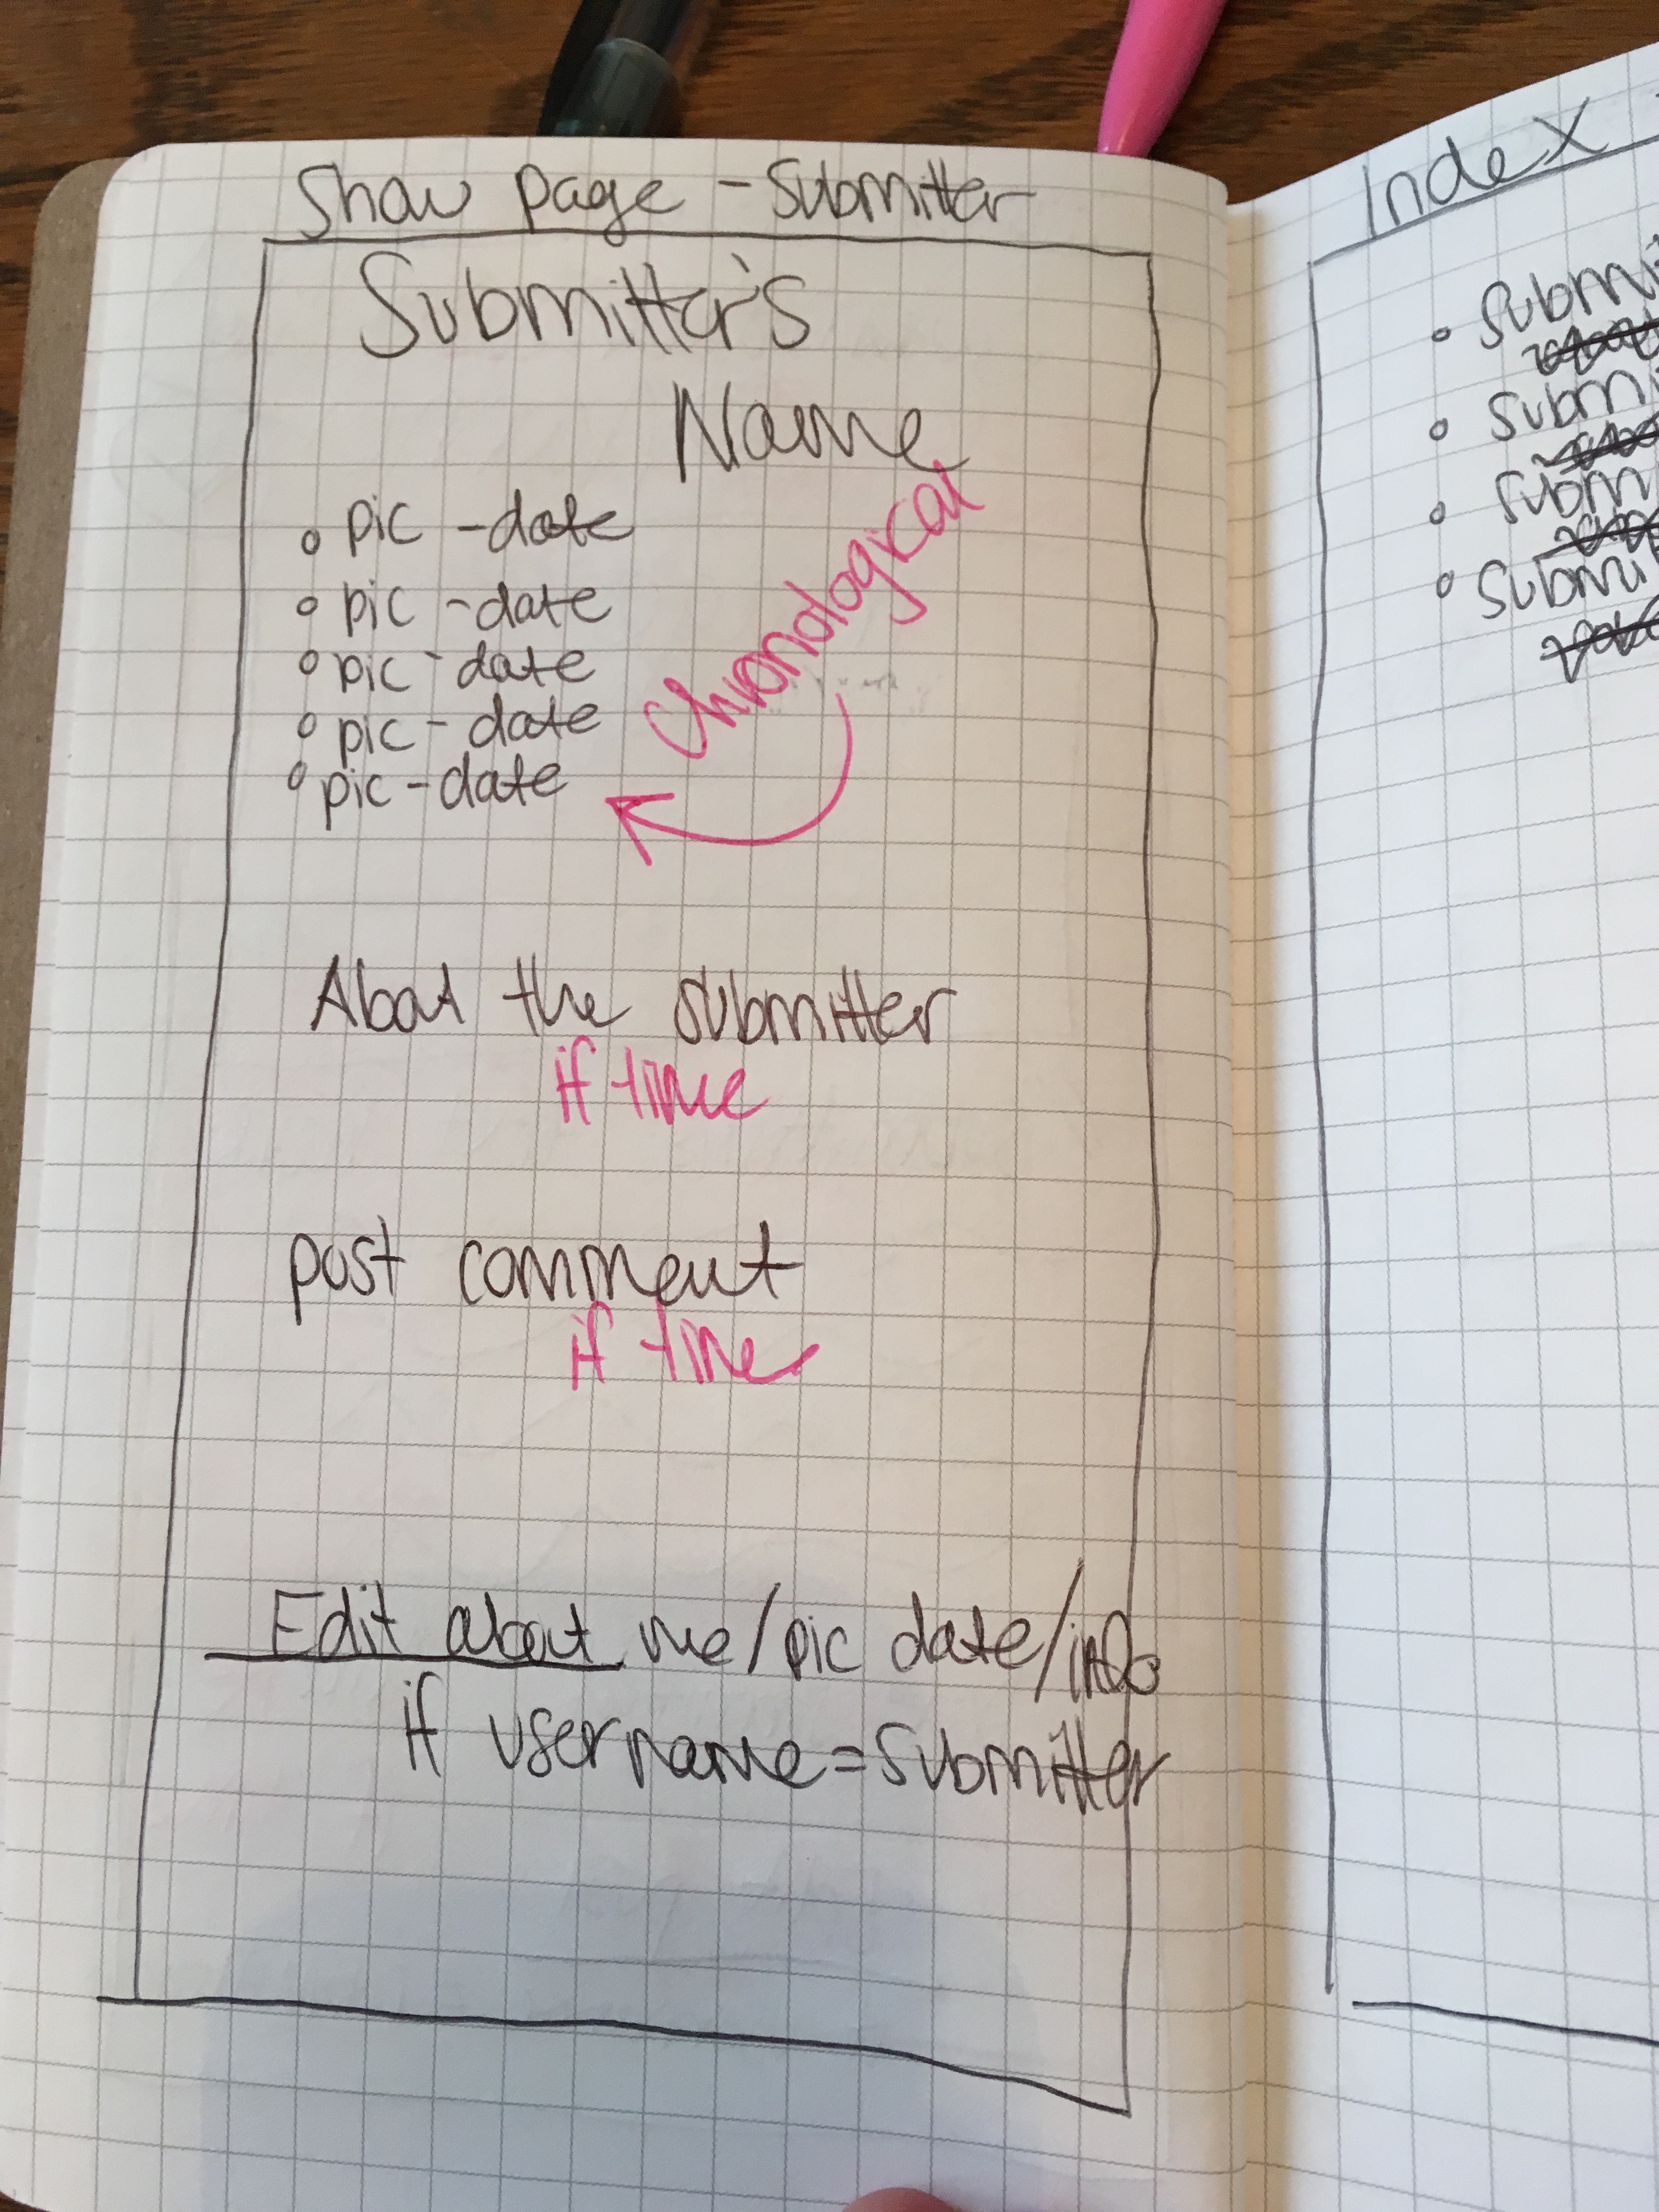 Show page - Submitter
Submitter's
Name
pic - date
pic - date
pic - date
pic - date
pic - date
Chronological
About the submitter
if time
post comment
if time
Edit about me/pic date/info
if username = submitter
Index
Submi
Submi
Subm
Submi